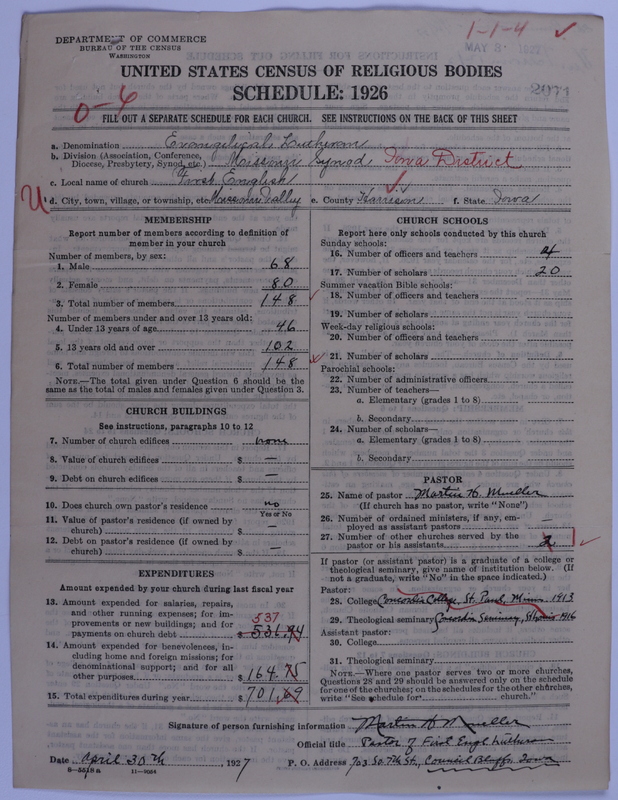 DEPARTMENT OF COMMERCE
BUREAU OF THE CENSUS
WASHINGTON
1-1-4
MAY 3 - 1927
2971
UNITED STATES CENSUS OF RELIGIOUS BODIES
SCHEDULE: 1926
0-4
FILL OUT A SEPARATE SCHEDULE FOR EACH CHURCH. SEE INSTRUCTIONS ON THE BACK OF THIS SHEET
a. Denomination Evangelical Lutheran
b. Division (Association, Conference, Diocese, Presbytery, Synod, etc.) Missouri Synod Iowa District
c. Local name of church First English
U
d. City, town, village, or township, etc. Missouri Valley e. County Harrison f. State Iowa
MEMBERSHIP
Report number of members according to definition of
member in your church
Number of members, by sex:
1. Male 68
2. Female 80
3. Total number of members 148
Number of members under and over 13 years old:
4. Under 13 years of age 46
5. 13 years old and over 102
6. Total number of members 148
NOTE.—The total given under Question 6 should be the
same as the total of males and females given under Question 3.
CHURCH BUILDINGS
See instructions, paragraphs 10 to 12
7. Number of church edifices none
8. Value of church edifices $ —
9. Debt on church edifices $ —
10. Does church own pastor's residence no
Yes or No
11. Value of pastor's residence (if owned by
church) $ —
12. Debt on pastor's residence (if owned by
church) $ —
EXPENDITURES
Amount expended by your church during last fiscal year
13. Amount expended for salaries, repairs,
and other running expenses; for im-
provements or new building; and for 537
payments on church debt $ 536.94
14. Amount expended for benevolences, in-
cluding home and foreign missions; for
denominational support; and for all
other purposes $ 164.75
15. Total expenditures during year $ 701.69
CHURCH SCHOOLS
Report here only schools conducted by this church
Sunday schools:
16. Number of officers and teachers 4
17. Number of scholars 20
Summer vacation Bible schools:
18. Number of officers and teachers
19. Number of scholars
Week-day religious schools:
20. Number of officers and teachers
21. Number of scholars
Parochial schools:
22. Number of administrative officers
23. Number of teachers—
a. Elementary (grades 1 to 8)
b. Secondary
24. Number of scholars—
a. Elementary (grades 1 to 8)
b. Secondary
PASTOR
25. Name of pastor Martin H. Mueller
(If church has no pastor, write "None")
26. Number of ordained ministers, if any, em-
ployed as assistant pastors —
27. Number of other churches served by the
pastor or his assistants 2 1
If pastor (or assistant pastor) is a graduate of a college or
theological seminary, give name of institution below. (If
not a graduate, write "No" in the space indicated.)
Pastor:
28. College Concordia College, St. Paul, Minn. 1913
29. Theological seminary Concordia Seminary, St. Louis 1916
Assistant pastor:
30. College
31. Theological seminary
NOTE.—Where one pastor serves two or more churches,
Questions 28 and 29 should be answered only on the schedule
for one of the churches; on the schedules for the other churches,
write "See schedule for church."
Signature of person furnishing information Martin H. Mueller
Official title Pastor of First Engl. Lutheran
Date April 30th 1927 P. O. Address 703 So. 7th St., Council Bluffs, Iowa
11—9084